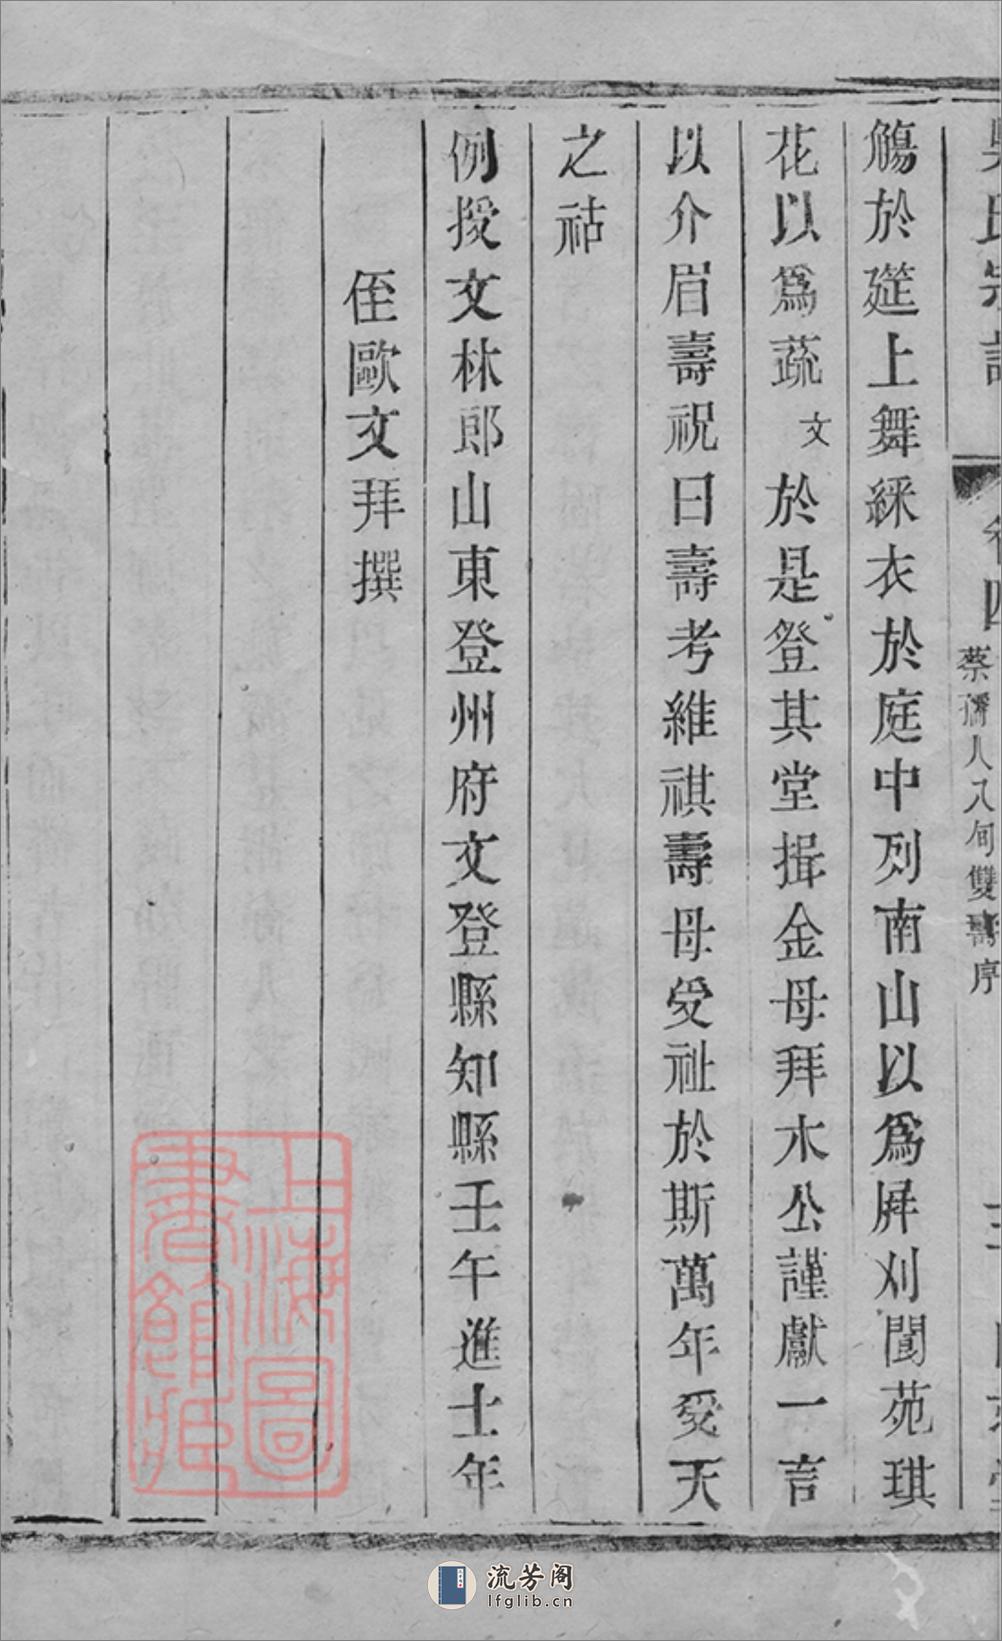 吳氏宗譜 卷四 蔡孺人八旬雙壽序
觴於筵上舞綵衣於庭中列南山以爲屛刈閬苑琪
花以爲蔬文於是登其堂揖金母拜木公謹獻一言
以介眉壽祝曰壽考維祺壽母受祉於斯萬年受天
之祜
例授文林郎山東登州府文登縣知縣壬午進士年
侄歐文拜撰
上海圖書館藏
流芳阁
lfglib.cn